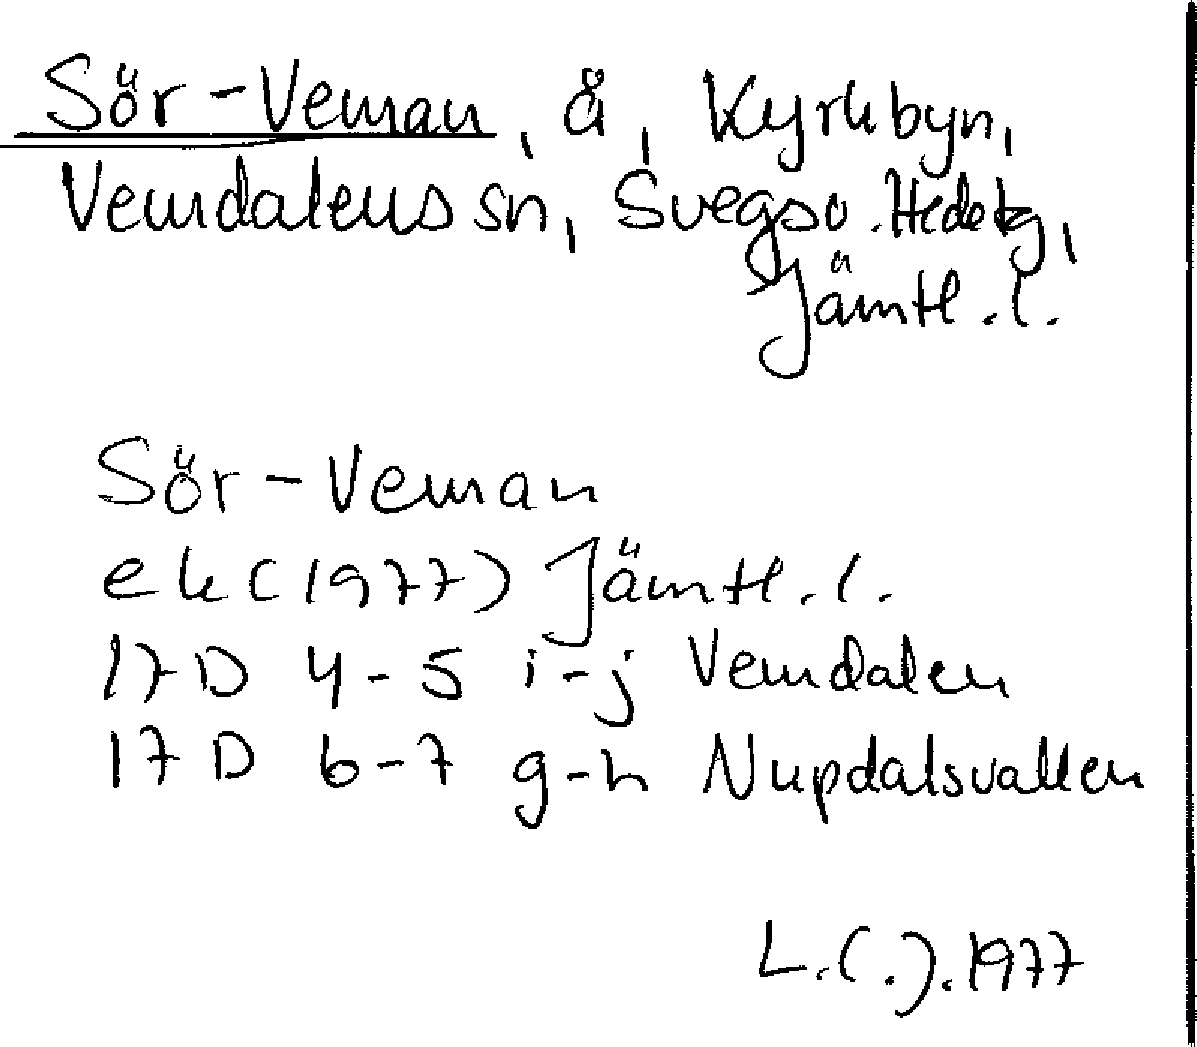 Sör-Veman, å, Kyrkbyn,
Vemdalens sn, Svegs o. Hede tg,
Jämtl. l.
Sör-Veman
ek (1977) Jämtl. l.
17D 4-5 i-j Vemdalen
17D 6-7 g-h Nupdalsvallen
L.(.).1977